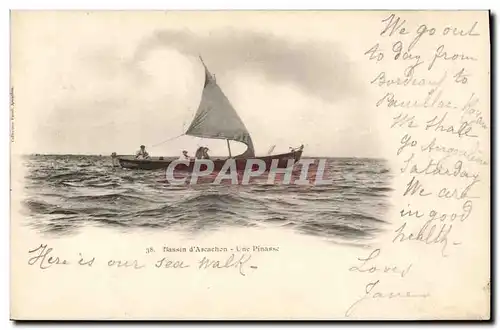 We go out
to day from
Bordeaux to
Pauillac
We Shall
go
Saturday
We are
in good
health
Love
Jane
Here is our Sea Walk
38. Bassin d'Arcachon - Une Pinasse
CPARAMA